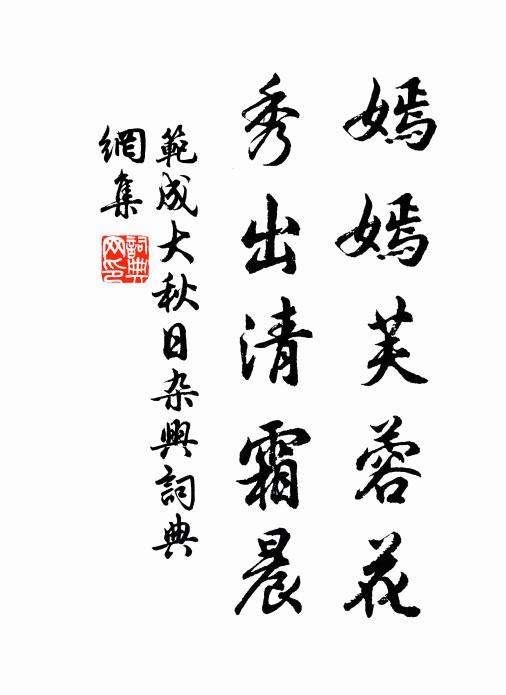 嫣嫣芙蓉花
秀出清霜晨
範成大秋日杂興詞典
網集
詞典
网印